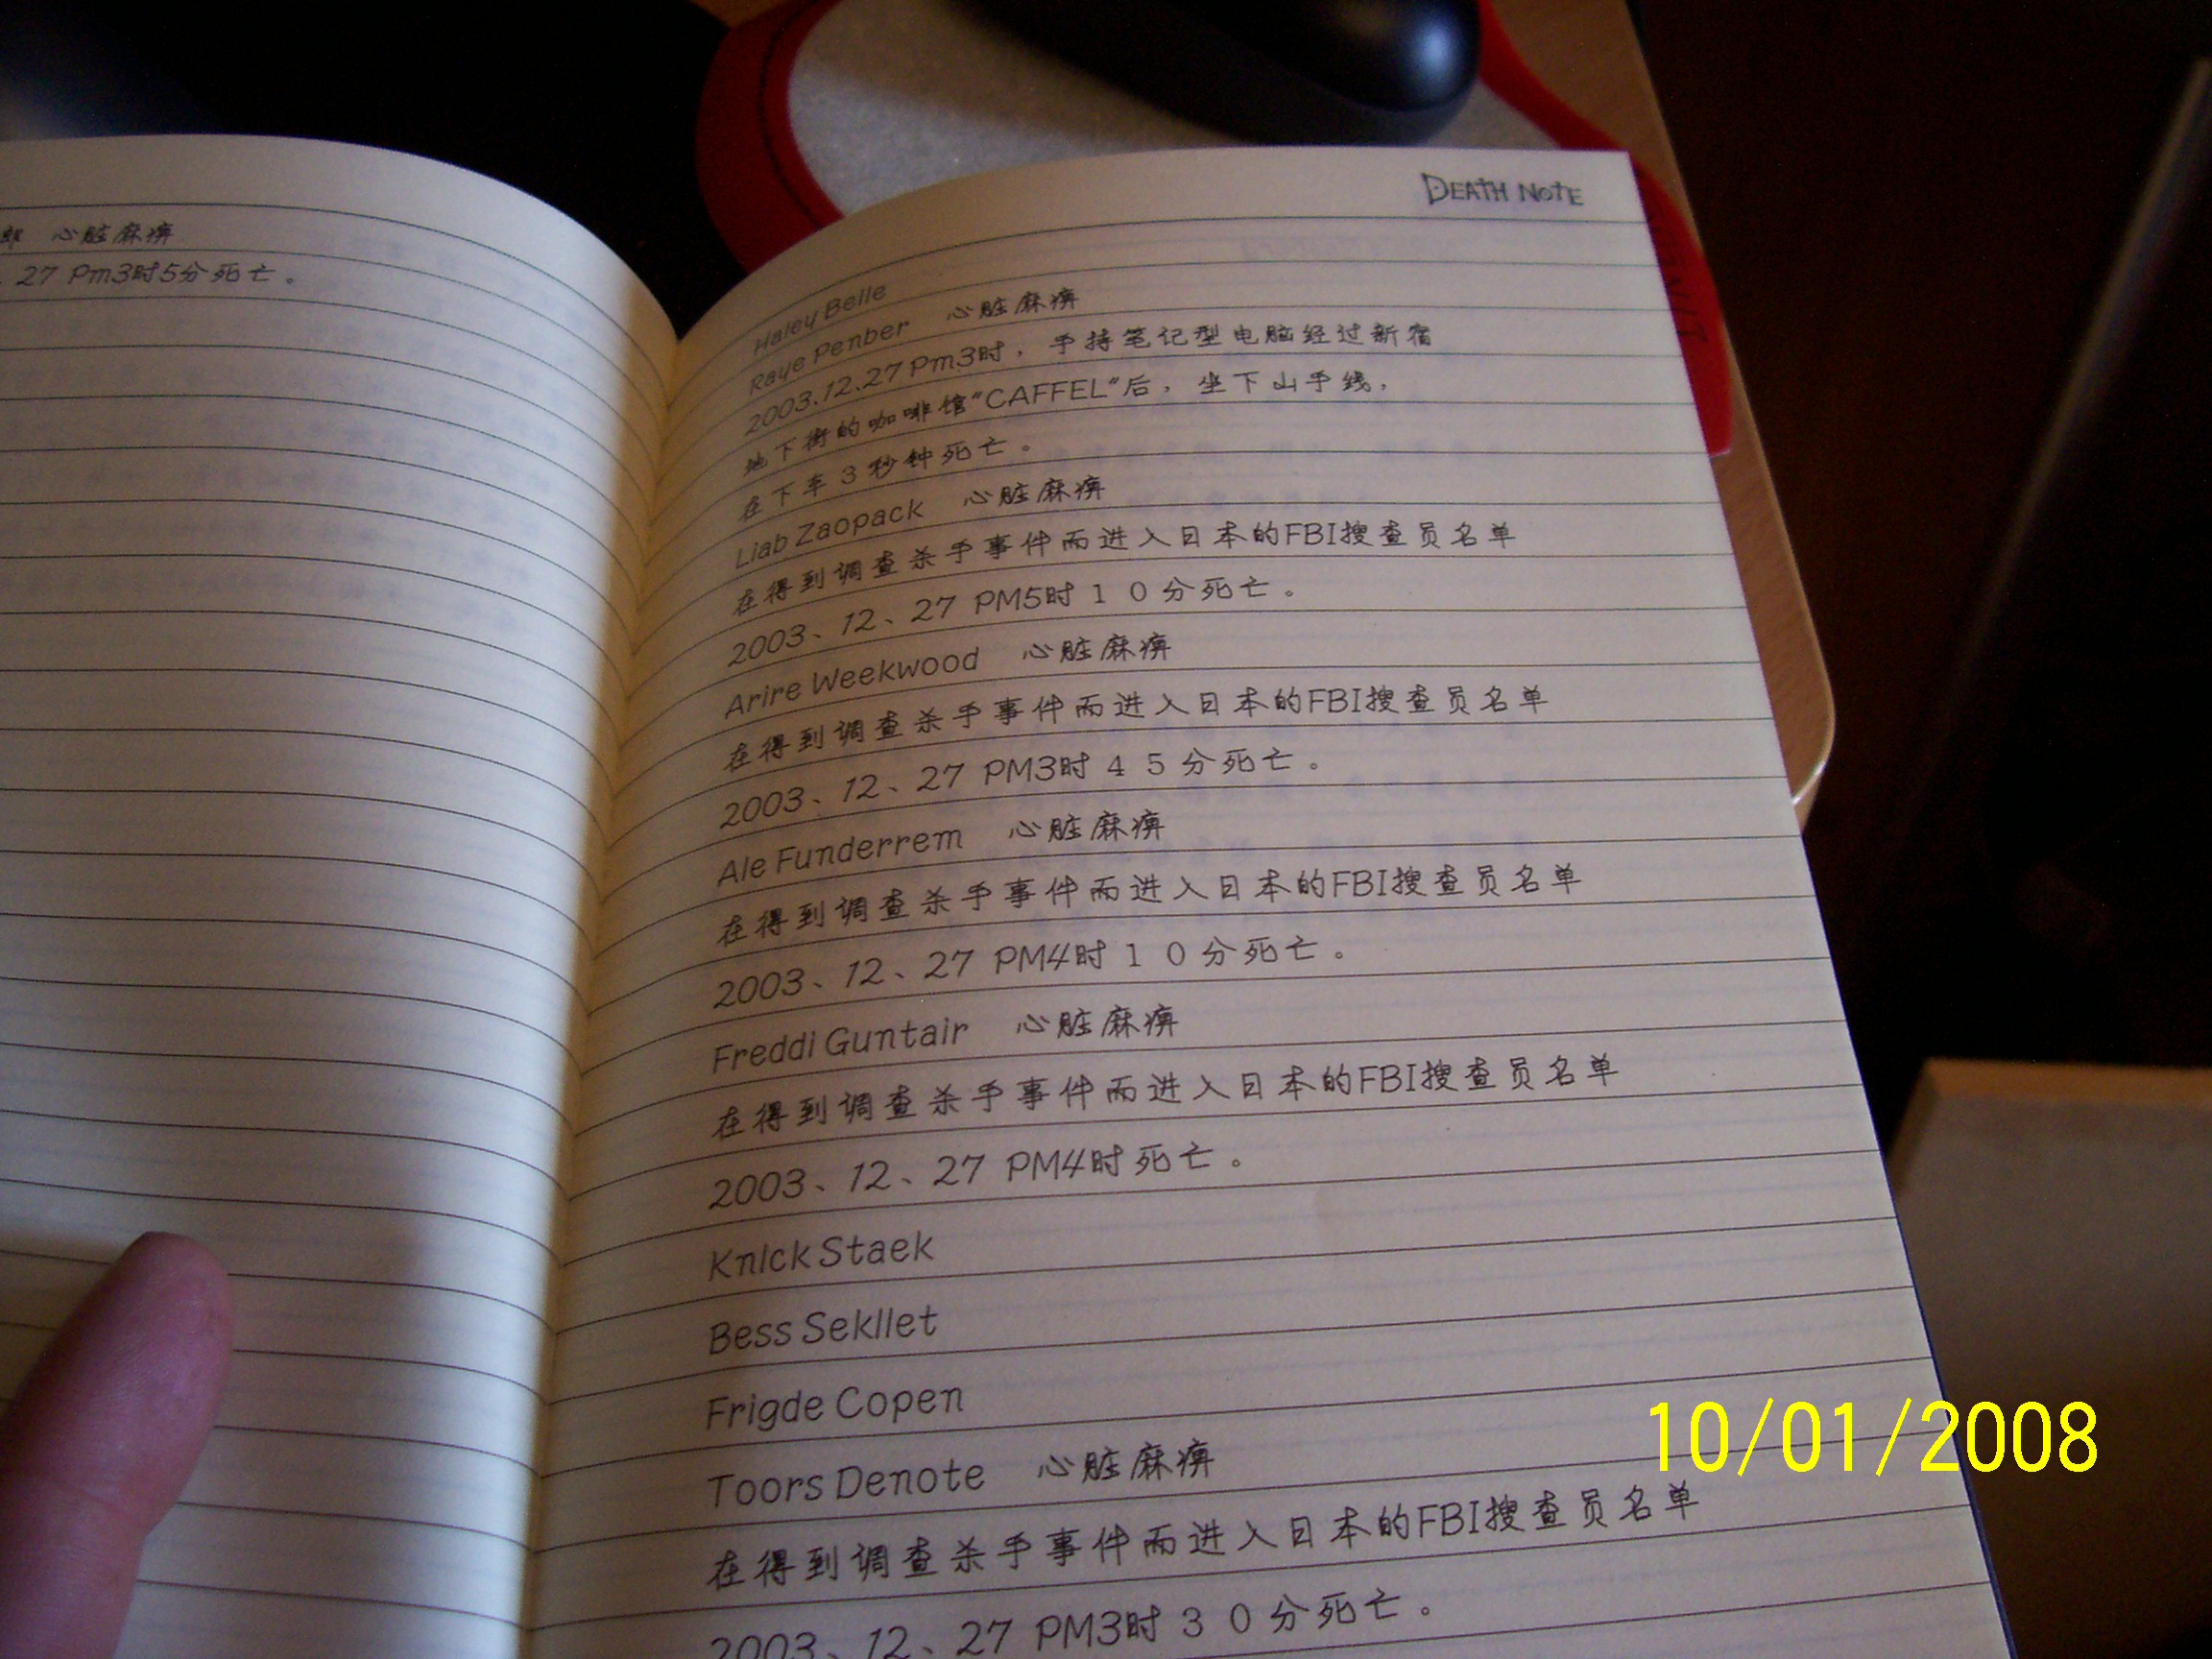 郎 心脏麻痹
27 Pm3时5分死亡。
DEATH NOTE
Haley Belle
Raye Penber 心脏麻痹
2003.12.27 Pm3时，手持笔记型电脑经过新宿
地下街的咖啡馆"CAFFEL"后，坐下山手线，
在下车3秒钟死亡。
Liab Zaopack 心脏麻痹
在得到调查杀手事件而进入日本的FBI搜查员名单
2003、12、27 PM5时10分死亡。
Arire Weekwood 心脏麻痹
在得到调查杀手事件而进入日本的FBI搜查员名单
2003、12、27 PM3时45分死亡。
Ale Funderrem 心脏麻痹
在得到调查杀手事件而进入日本的FBI搜查员名单
2003、12、27 PM4时10分死亡。
Freddi Guntair 心脏麻痹
在得到调查杀手事件而进入日本的FBI搜查员名单
2003、12、27 PM4时死亡。
Knlck Staek
Bess Sekllet
Frigde Copen
Toors Denote 心脏麻痹
在得到调查杀手事件而进入日本的FBI搜查员名单
2003、12、27 PM3时30分死亡。
10/01/2008